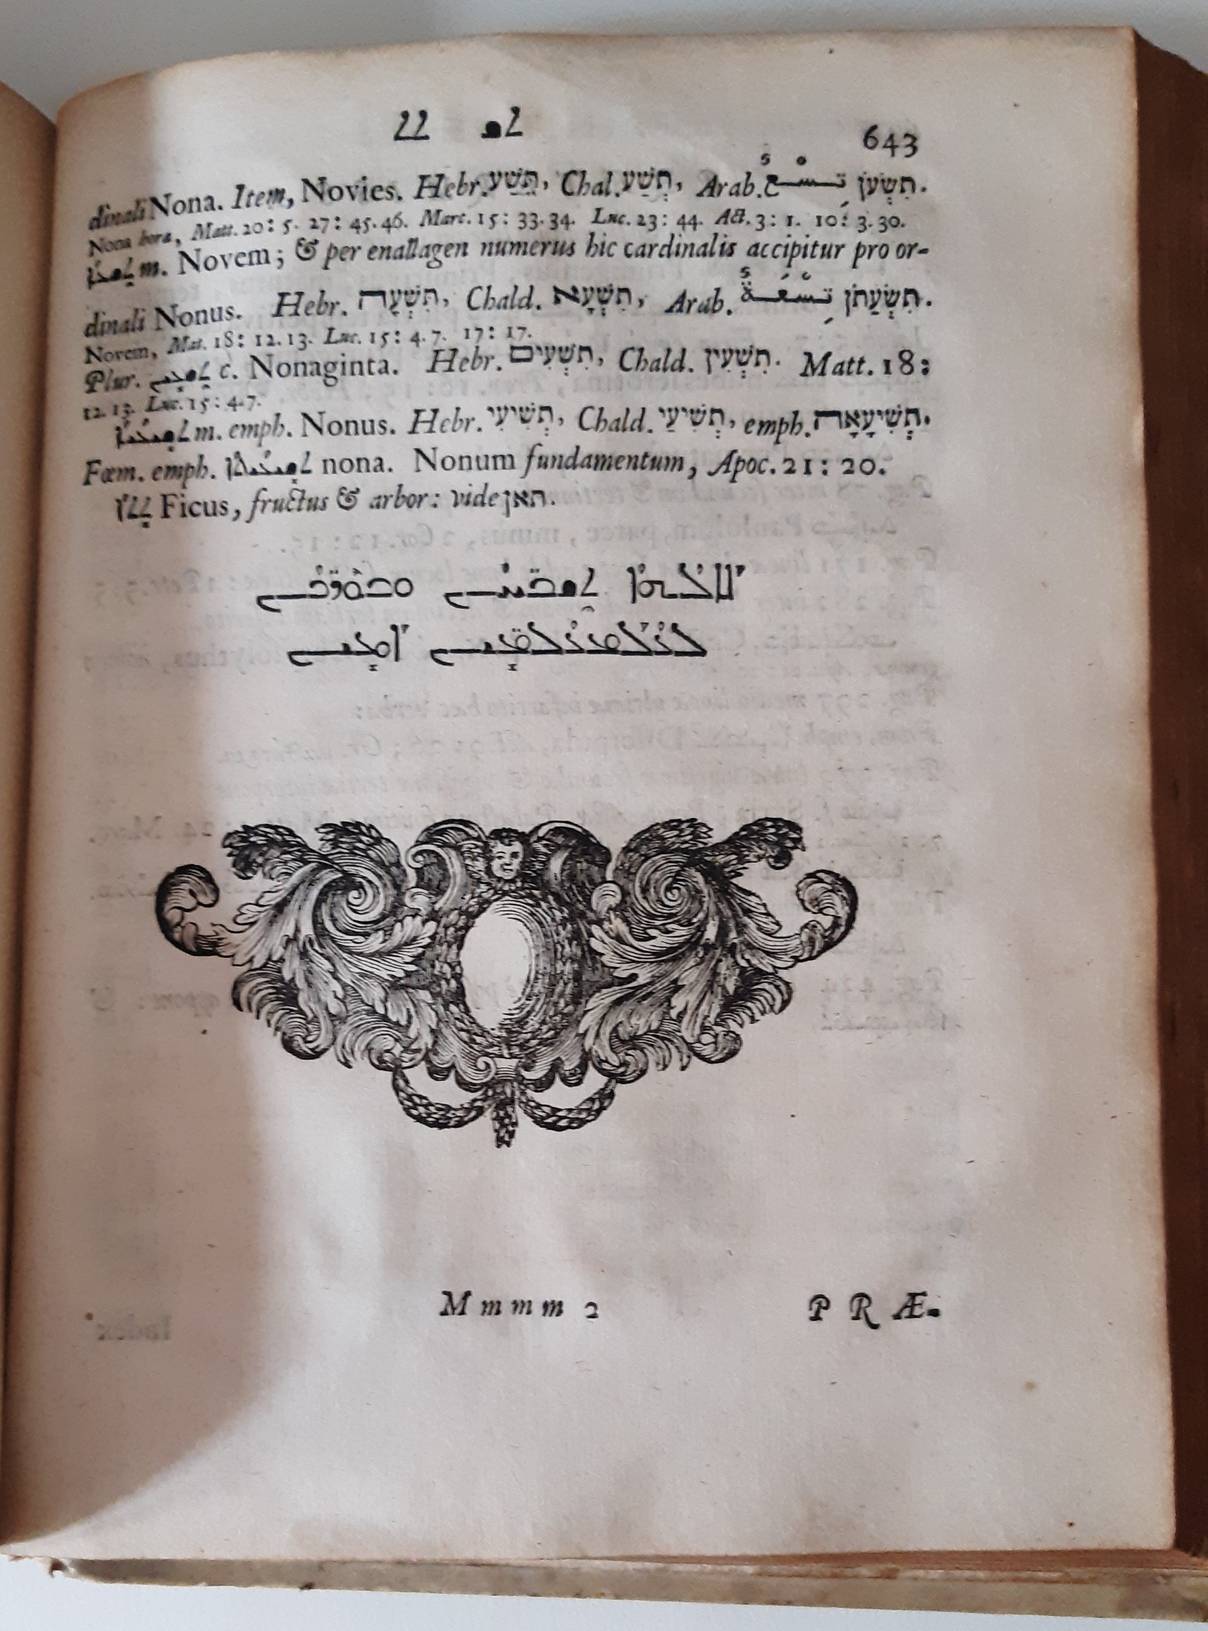 ܬܫ ܬܬ 643
dinali Nona. Item, Novies. Hebr. תֵּשַׁע, Chal. תְּשַׁע, Arab. تِسْعٌ תִּשְׂעֻןֹ.
Nona hora, Matt. 20: 5. 27: 45. 46. Marc. 15: 33. 34. Luc. 23: 44. Act. 3: 1. 10: 3. 30.
m. Novem; & per enallagen numerus hic cardinalis accipitur pro or-
dinali Nonus. Hebr. תִּשְׁעָה, Chald. תִּשְׁעָא, Arab. תִשְׂעַתֹן.
Novem, Mat. 18: 12. 13. Luc. 15: 4. 7. 17: 17.
Plur. c. Nonaginta. Hebr. תִּשְׁעִים, Chald. תִּשְׁעִין. Matt. 18:
12. 13. Luc. 15: 4. 7.
m. emph. Nonus. Hebr. תְּשִׁיעִי, Chald. תְּשִׁיעַי, emph. תְּשִׁיעָאָה.
Fœm. emph. nona. Nonum fundamentum, Apoc. 21: 20.
Ficus, fructus & arbor: vide תאן.
ܠܥܠܡܥܠܡܝܢ ܐܡܝܢ
M m m m 2 P R Æ-